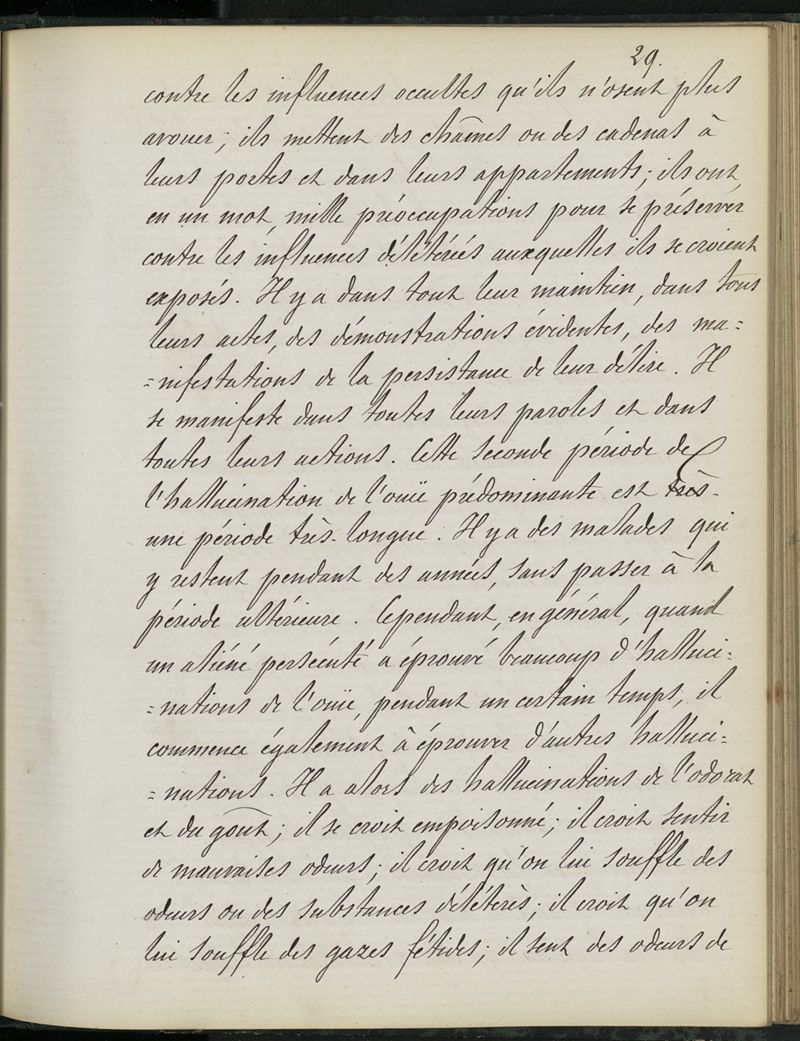 29.
contre les influences occultes qu'ils n'osent plus
avouer; ils mettent des chaînes ou des cadenas à
leurs portes et dans leurs appartements; ils ont,
en un mot, mille préoccupations pour se préserver
contre les influences délétéres auxquelles ils se croient
exposés. Il y a dans tout leur maintien, dans tous
leurs actes, des démonstrations évidentes, des ma=
=nifestations de la persistance de leur délire. Il
se manifeste dans toutes leurs paroles et dans
toutes leurs actions. Cette seconde période de
l'hallucination de l'ouïe prédominante est très-
une période très-longue. Il y a des malades qui
y restent pendant des années, sans passer à la
période ultérieure. Cependant, en général, quand
un aliéné persécuté a éprouvé beaucoup d'halluci=
=nations de l'ouïe, pendant un certain temps, il
commence également à éprouver d'autres halluci=
=nations. Il a alors des hallucinations de l'odorat
et du goût; il se croit empoisonné; il croit sentir
de mauvaises odeurs; il croit qu'on lui souffle des
odeurs ou des substances délétères; il croit qu'on
lui souffle des gazes fétides; il sent des odeurs de